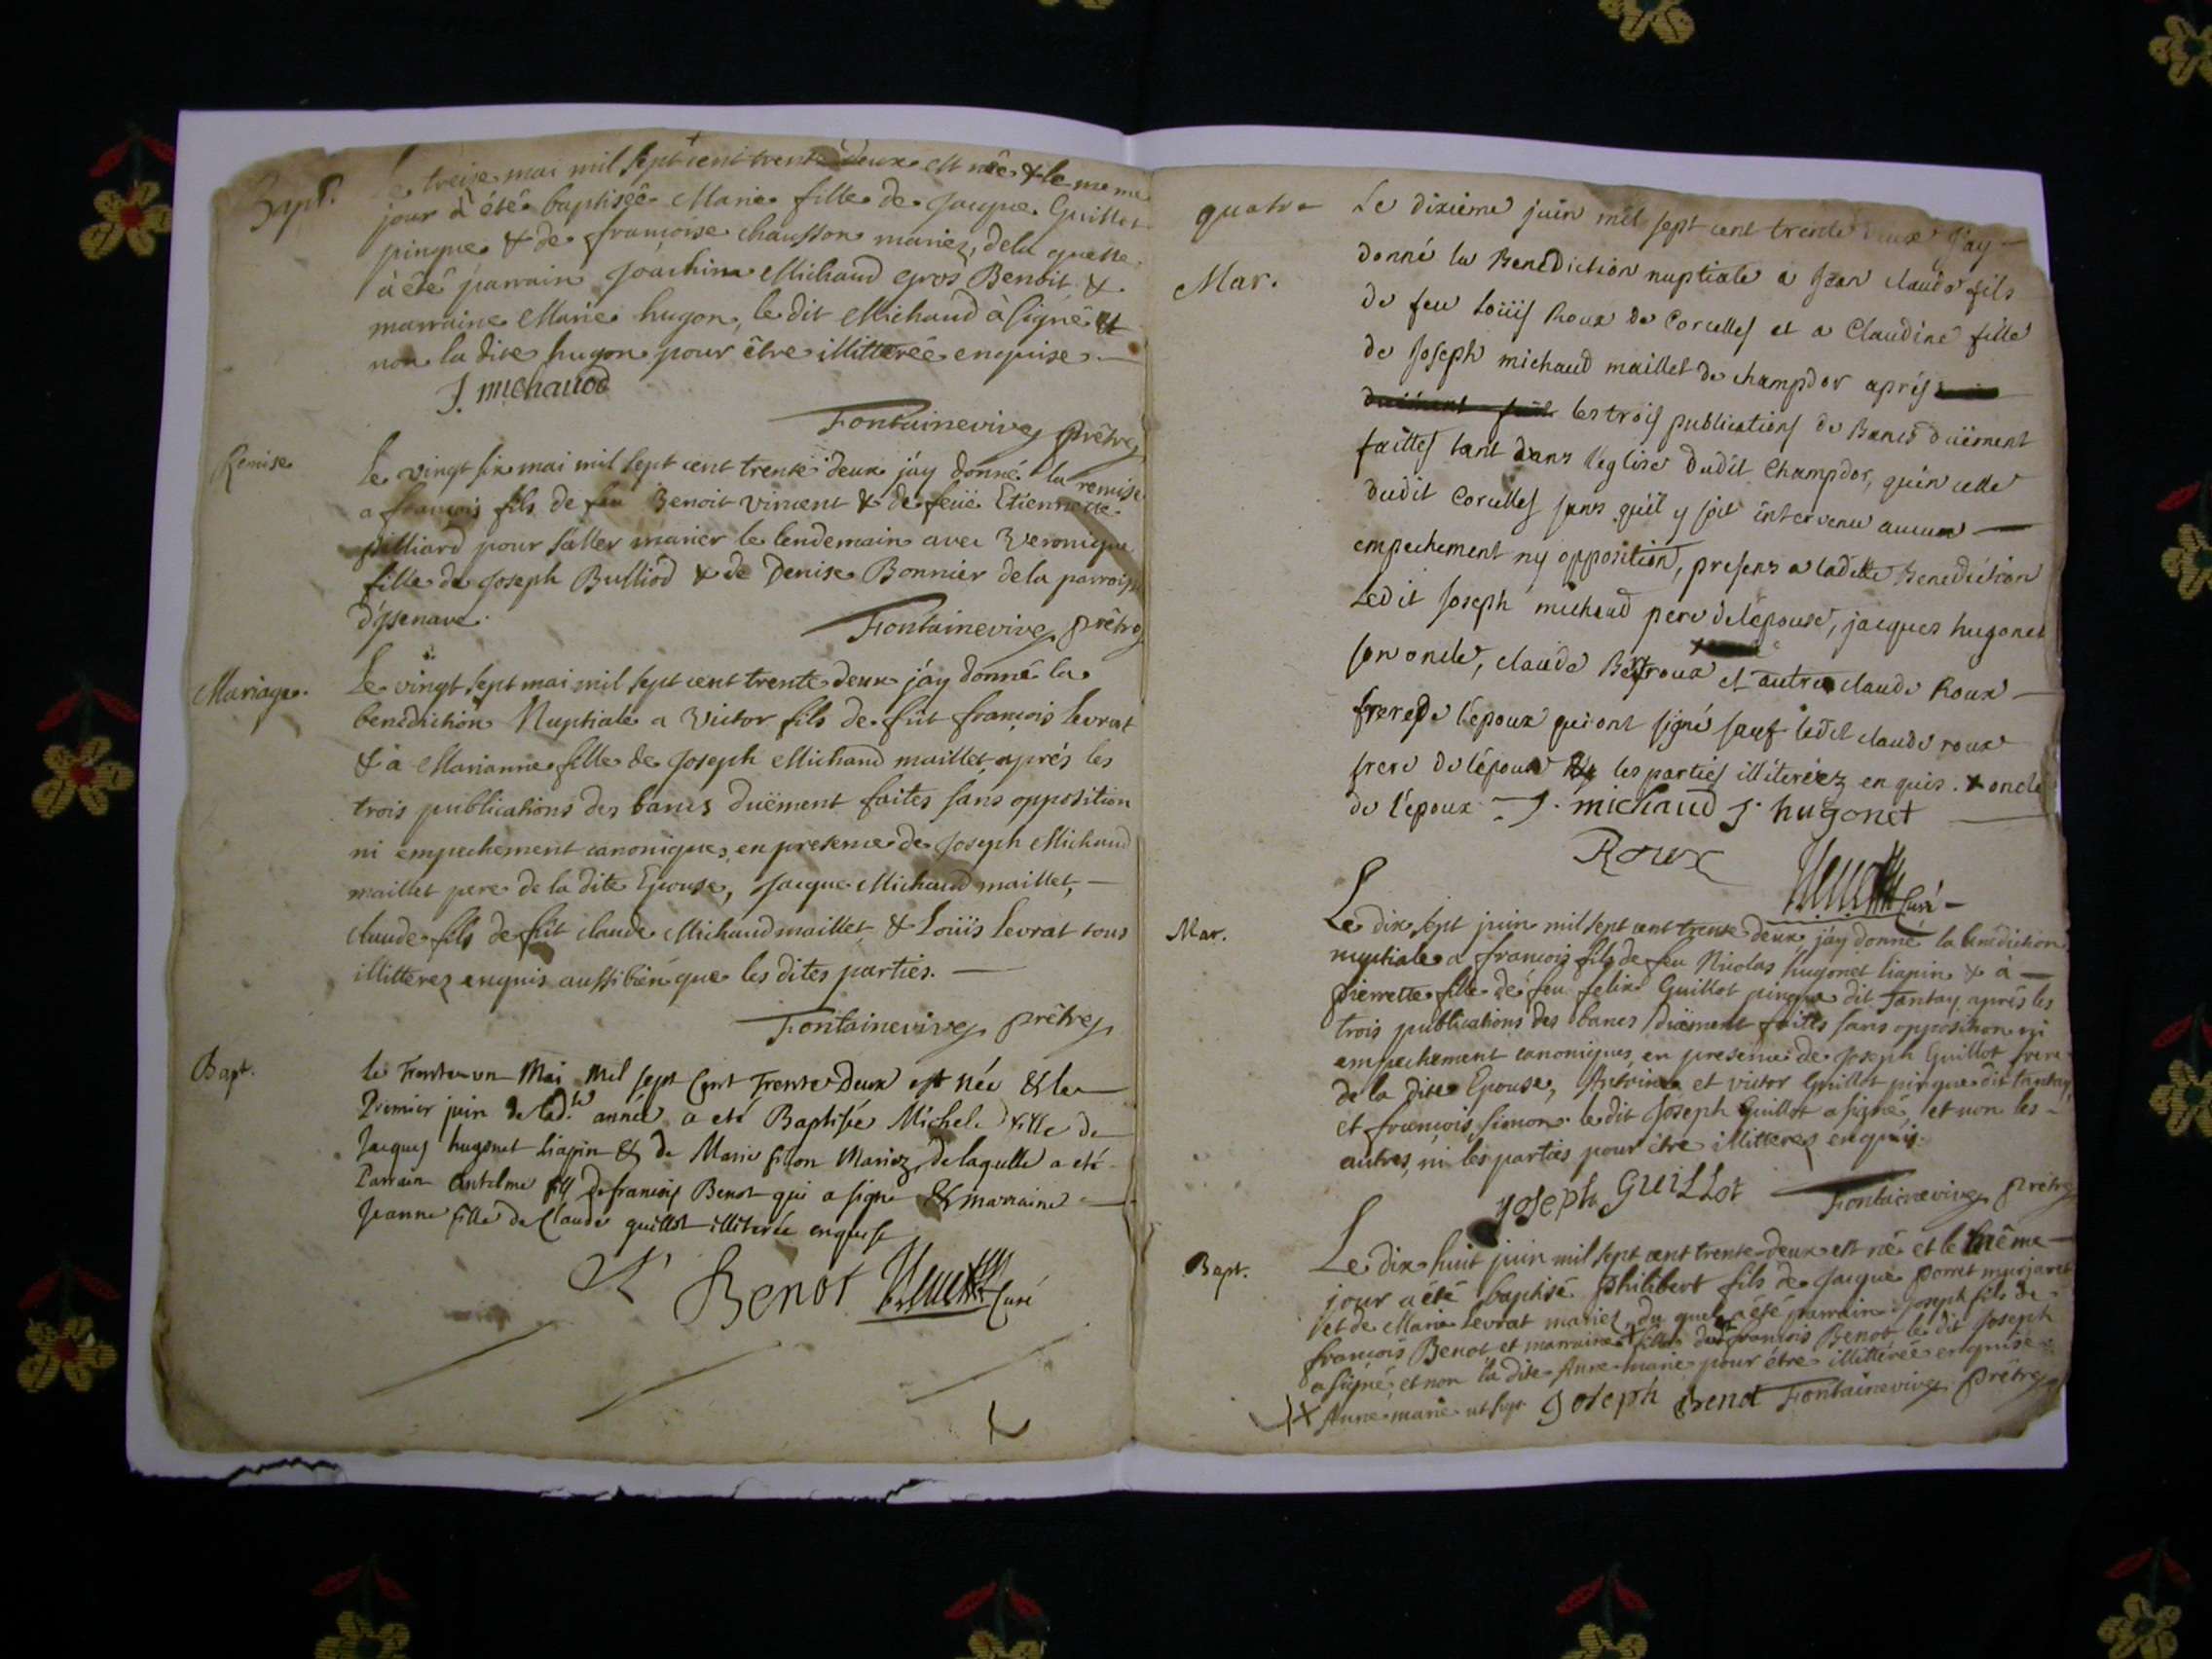 Bapt. Le treize mai mil sept cent trente deux est née & le meme
jour a été baptisée Marie fille de Jacque Guillot
pinque & de françoise chausson mariez, dela quelle
à été parrain Joachim Michaud gros Benoit &
marraine Marie hugon, le dit Michaud à signé et
non la dite hugon pour être illitterée enquise
J. michauod
Fontainevive prêtre
Remise
Le vingt six mai mil sept cent trente deux j'ay donné la remise
a françois fils de feu Benoit vincent & de feüe Etiennette
billiard pour s'aller marier le lendemain avec Veronique
fille de Joseph Bulliod & de Denise Bonnier dela parroisse
d'jzenave.
Fontainevive prêtre
Mariage.
Le vingt sept mai mil sept cent trente deux j'ay donné la
benediction Nuptiale a Victor fils de fût françois Levrat
& à Marianne fille de Joseph Michaud maillet après les
trois publications des bancs duëment faites sans opposition
ni empechement canoniques, en presence de Joseph Michaud
maillet pere de la dite Epouse, Jacque Michaud maillet,
claude fils de fût claude Michaud maillet & Loüis Levrat tous
illitterez enquis aussi bien que les dites parties.
Fontainevive prêtre
Bapt.
Le Trente un Mai Mil sept Cent Trente Deux est née & le
Premier juin de lad.te année a eté Baptisée Michele fille de
Jacques hugonet liapin & de Marie simon Mariez, de laquelle a eté
Parrain antelme fils de françois Benot qui a signé & marraine
Jeanne fille de Claude guillot illiterée enquise
Benot Curé
quatre
Le dixieme juin mil sept cent trente deux J'ay
Mar.
donné la Benediction nuptiale a Jean claude fils
de feu Loüis Roux de Corcelles et a Claudine fille
de Joseph michaud maillet de champdor aprés
les trois publications de Bancs duëment
faittes tant dans l'eglise dudit Champdor, qu'en celle
dudit Corcelles sans qu'il y soit intervenu aucun
empechement ny opposition, presens a ladite Benediction
Ledit Joseph michaud pere de lépouse, jacques hugonet
son oncle, claude roux et autre claude Roux
frere de l'époux qui ont signé sauf ledit claude roux
frere de lépoux les parties illiteréez enquis. + oncle
de l'époux J. michaud J. hugonet
Roux
Curé
Mar.
Le dix sept juin mil sept cent trente deux j'ay donné la bénédiction
nuptiale a françois fils de feu Nicolas hugonet liapin & à
Pierrette fille de feu felix Guillot pinque dit Tantay après les
trois publications des bancs duëment faites sans opposition ni
empechement canoniques, en presence de Joseph Guillot frere
de la dite Epouse, Antoine et victor Guillot pinque dit tantay
et françois Simon. le dit Joseph Guillot a signé, et non les
autres, ni les parties pour être illitterez enquis.
JOSEPH GUILLot Fontainevive prêtre
Bapt.
Le dix huit juin mil sept cent trente deux est né et le même
jour a été baptisé Philibert fils de Jacque porret murjaret
et de Marie Levrat mariez, du quel a été parrain Joseph fils de
françois Benot et marraine X fille dudt françois Benot le dit Joseph
a signé, et non la dite Anne marie pour être illitterée enquise
X Anne marie Joseph Benot Fontainevive prêtre